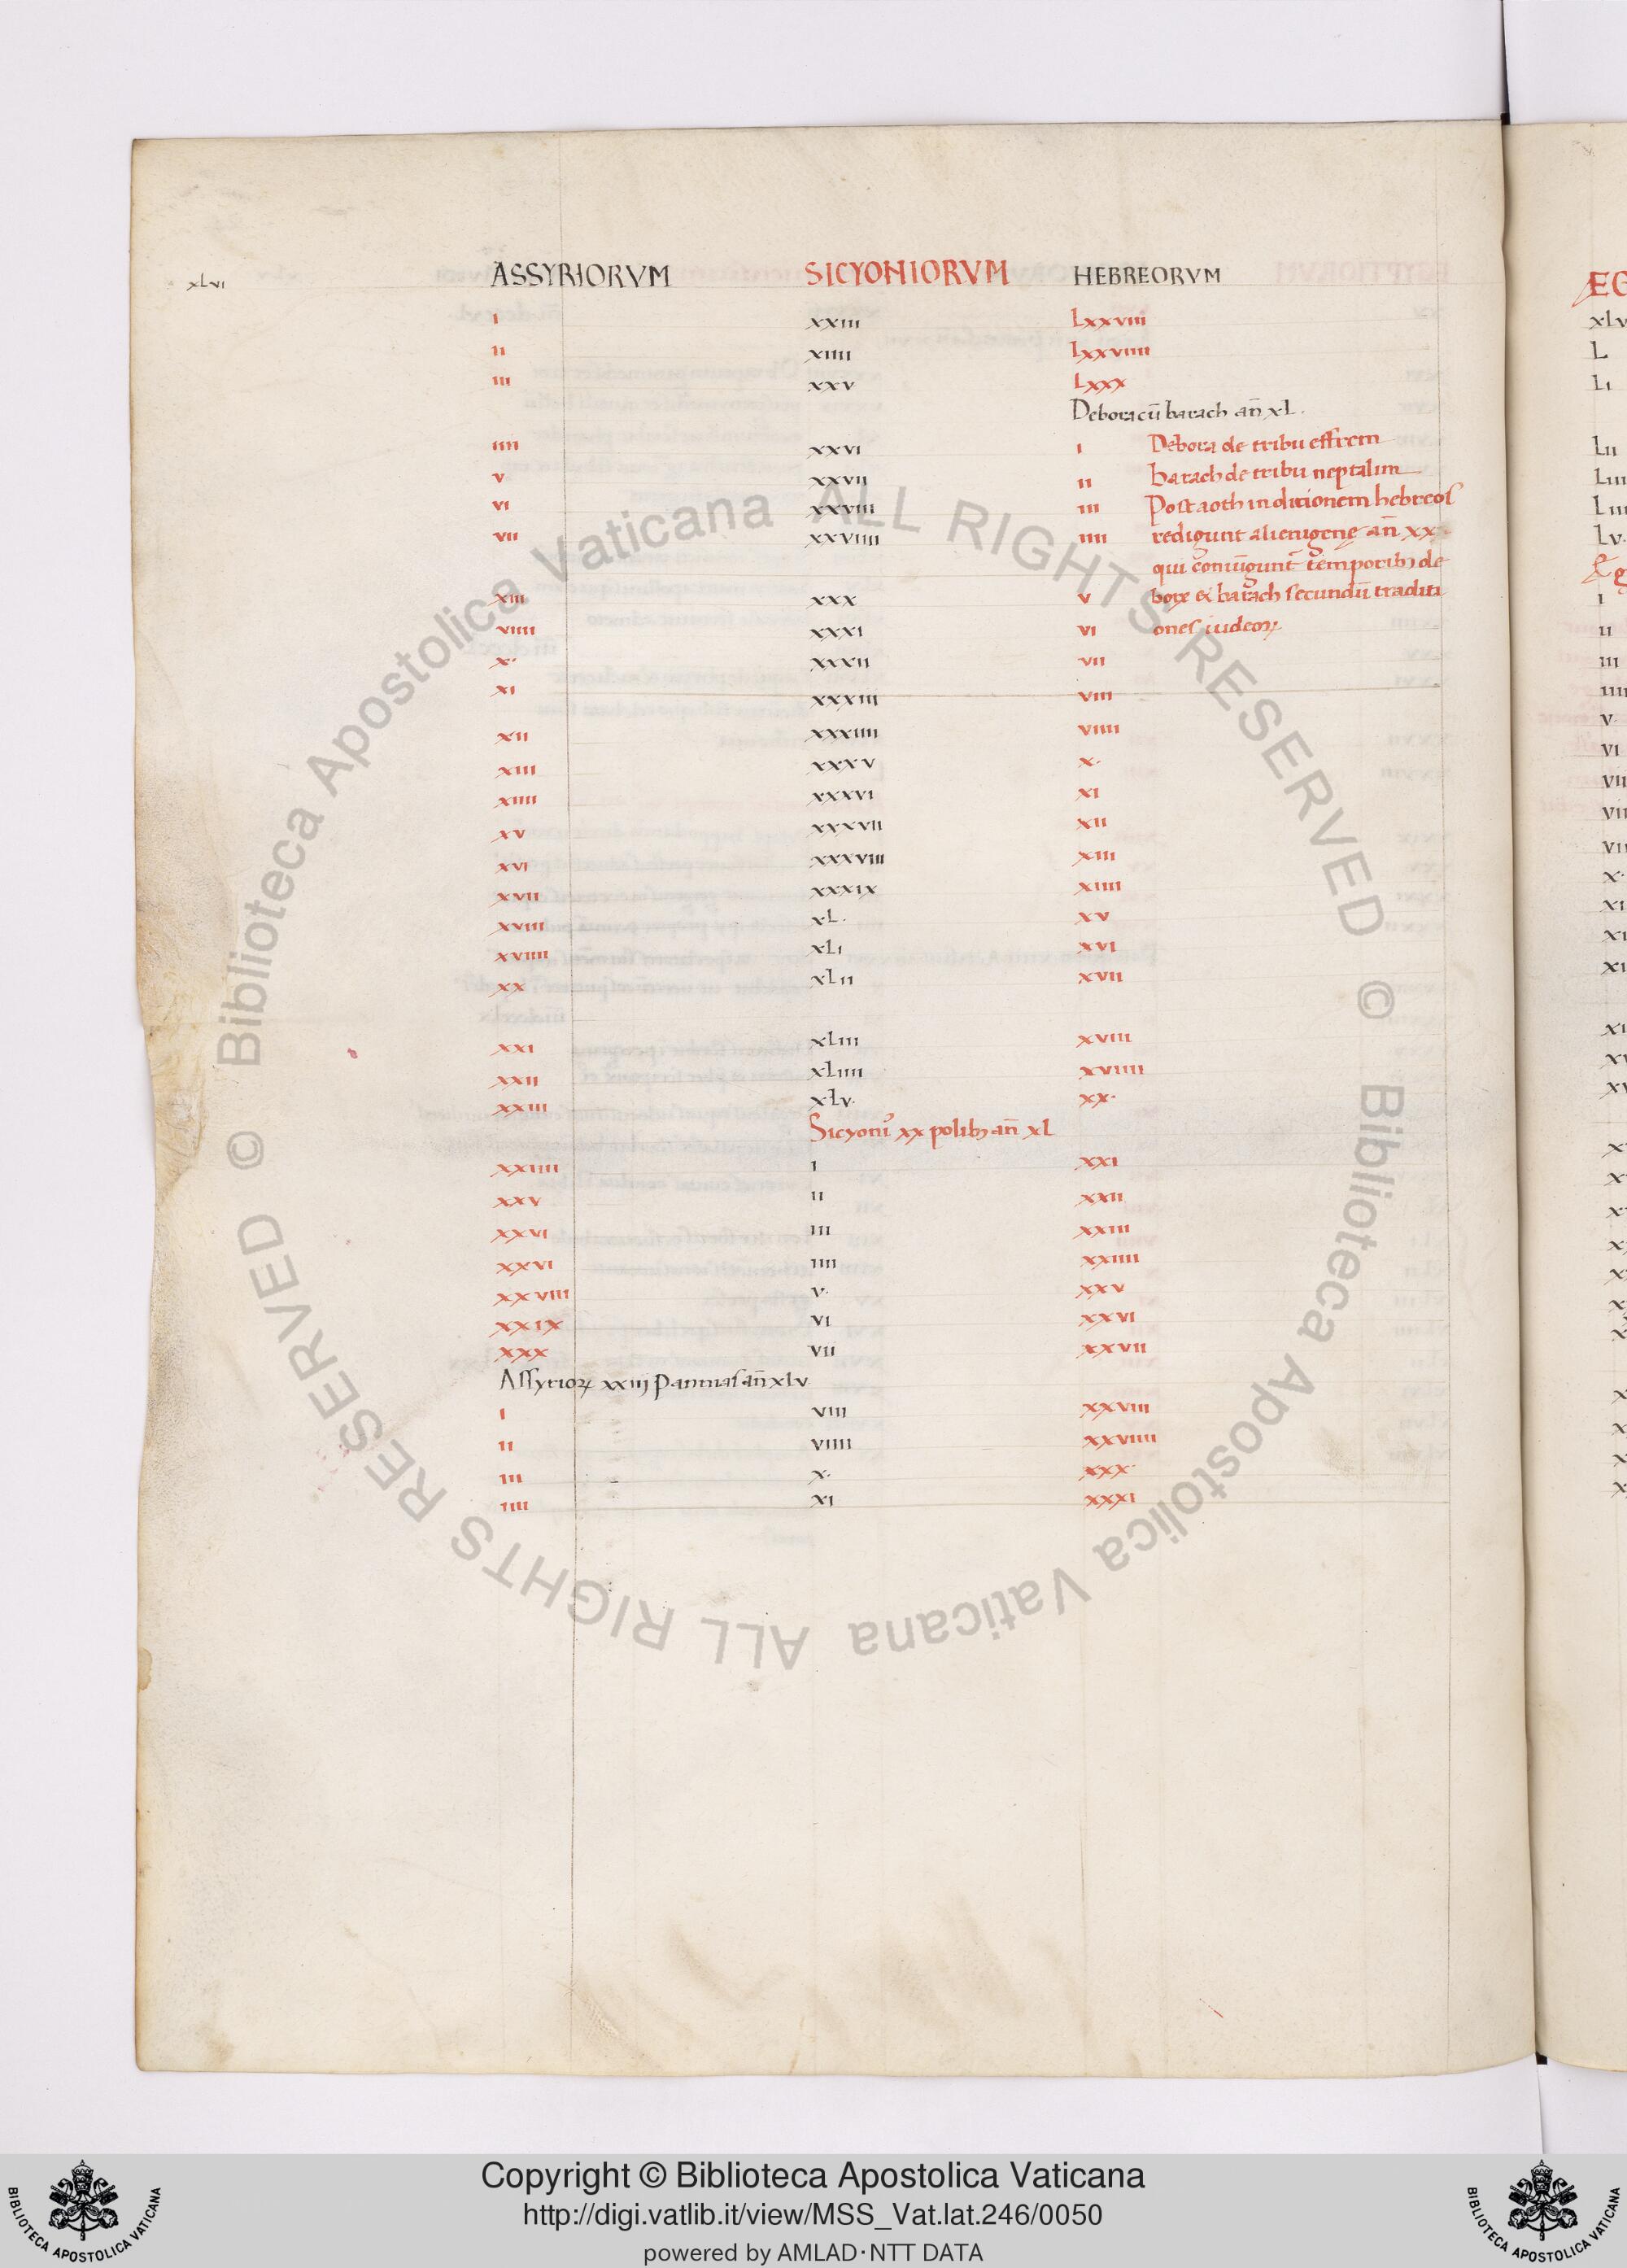 xLvi ASSYRIORVM SICYONIORVM HEBREORVM
I xxiii Lxxviii
ii xiiii Lxxviiii
iii xxv Lxxx
Debora cū barach añ xL.
iiii xxvi i Debora de tribu effrem
v xxvii ii barach de tribu neptalim
vi xxviii iii Post aoth in dicionem hebreos
vii xxviiii iiii redigunt alienigenę añ xx
qui coniūgunt temporibꝫ de
xiii xxx v borę ex barach secundū traditi
viiii xxxi vi ones iudeoꝝ
x· xxxii vii
xi xxxiii viii
xii xxxiiii viiii
xiii xxxv x·
xiiii xxxvi xi
xv xxxvii xii
xvi xxxviii xiii
xvii xxxix xiiii
xviii xL· xv
xviiii xLi xvi
xx xLii xvii
xxi xLiii xviii
xxii xLiiii xviiii
xxiii xLv· xx·
Sicyoni᾽ xx polibꝫ añ xL
xxiiii i xxi
xxv ii xxii
xxvi iii xxiii
xxvi iiii xxiiii
xxviii v· xxv
xxix vi xxvi
xxx vii xxvii
Assyrioꝝ xxiij Pannias añ xLv
i viii xxviii
ii viiii xxviiii
iii x· xxx·
iiii xi xxxi
EG
xLv
L
Li
Lii
Liii
Liiii
Lv.
i
ii
iii
iiii
v·
vi
© Biblioteca Apostolica Vaticana ALL RIGHTS RESERVED
© Biblioteca Apostolica Vaticana ALL RIGHTS RESERVED
BIBLIOTECA APOSTOLICA VATICANA
Copyright © Biblioteca Apostolica Vaticana
http://digi.vatlib.it/view/MSS_Vat.lat.246/0050
powered by AMLAD·NTT DATA
BIBLIOTECA APOSTOLICA VATICANA